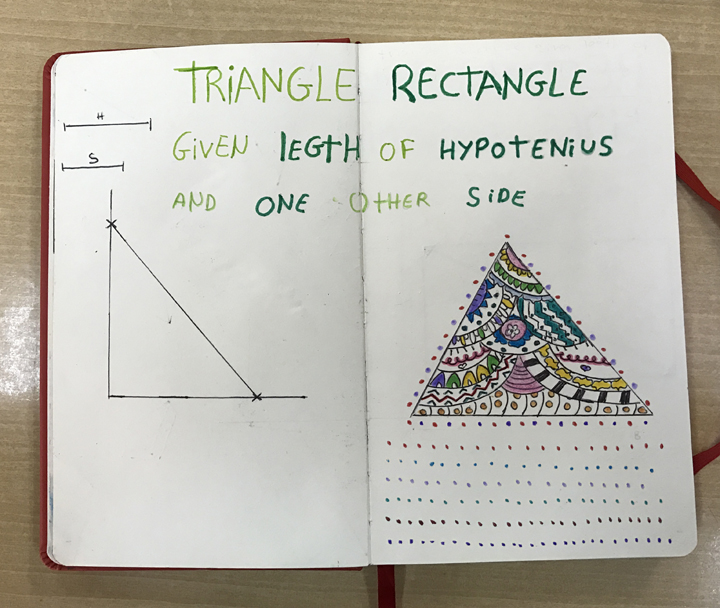 TRiANGLE RECTANGLE
GiVEN lEGTH OF HYPOTENiUS
AND ONE OTHER SiDE
H
S